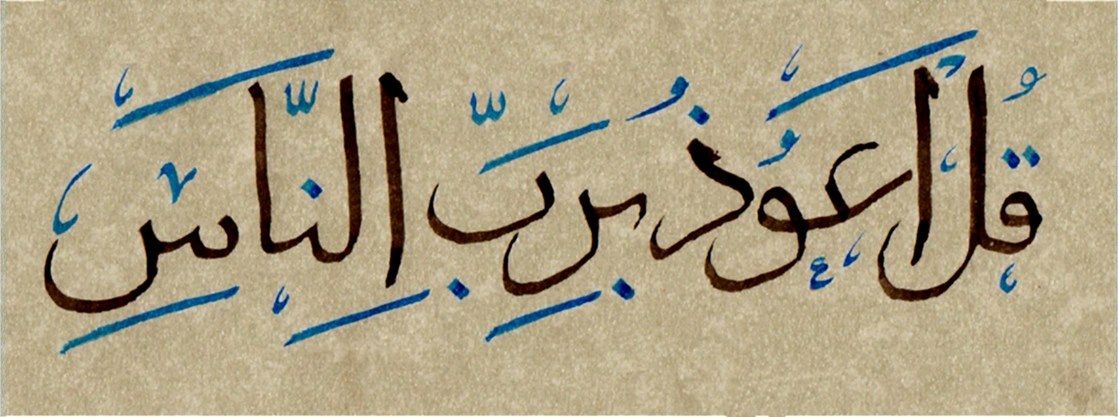 قُلْ أَعُوذُ بِرَبِّ النَّاسِ